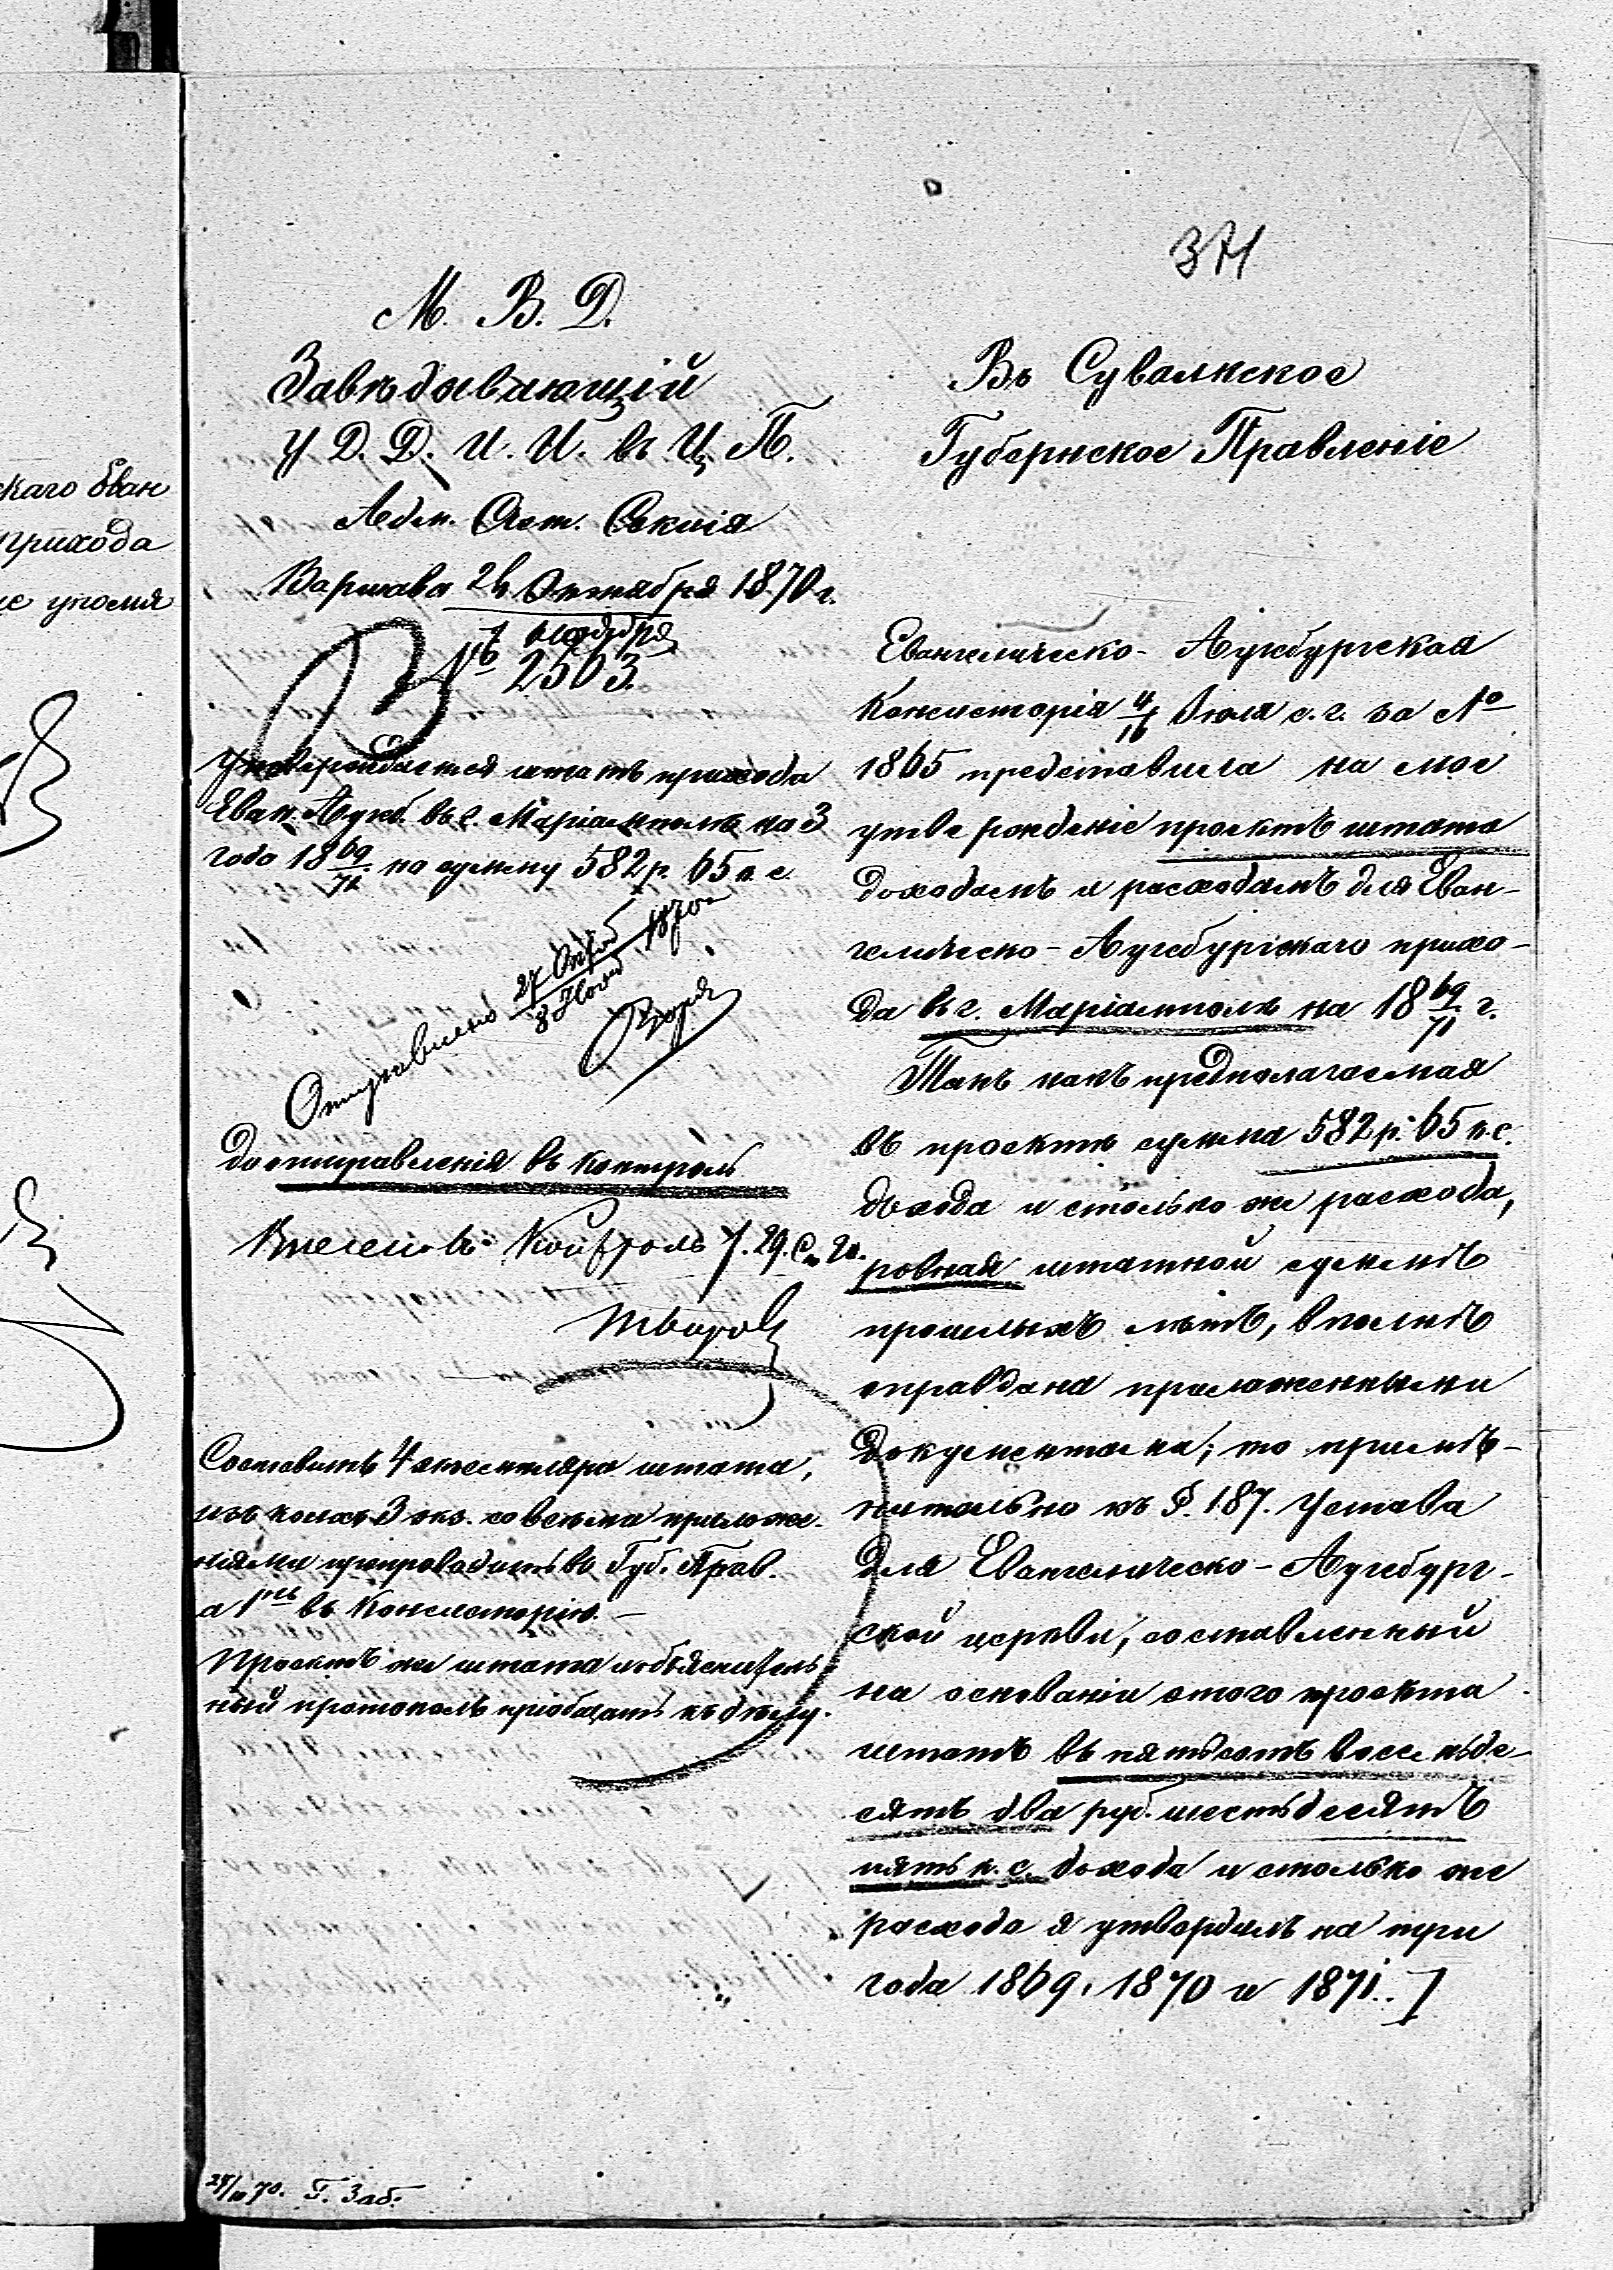 скаго Еван
прихода
упомя
371
М. В. Д.
Завѣдывающій
У Д. Д. И. И. въ Ц. П.
Адм. Сект. Секція
Варшава 26 Октября 1870 г.
7 Ноября
№ 2503.
Утверждается штатъ прихода
Еван. Аугсб. въ г. Маріамполѣ на 3
года 18 69/71 на сумму 582 р. 65 к. с.
Отправлено 27 Октяб / 8 Нояб 1870 г.
До отправленія въ контроль
Внесено въ Контроль
Составить 4 экземпляра штата,
изъ коихъ 3 экз. со всѣми приложе-
ніями препроводить въ Губ. Прав.
а 1нъ въ Консисторію. —
Проектъ же штата и объяснитель
ный протоколъ пріобщить къ дѣлу.
70. Г. Заб.
Въ Сувалкское
Губернское Правленіе
Евангелическо- Аугсбургская
Консисторія 4/16 Іюля с. г. за №
1865 представила на мое
утвержденіе проектъ штата
доходамъ и расходамъ для Еван-
гелическо- Аугсбургскаго прихо-
да въ г. Маріамполѣ на 18 69/71 г.
Такъ какъ предполагаемая
въ проектѣ сумма 582 р. 65 к. с.
дохода и столько же расхода,
ровная штатной суммѣ
прошлыхъ лѣтъ, вполнѣ
оправдана приложенными
документами; то примѣ-
нительно къ §. 187. Устава
для Евангелическо- Аугсбург-
ской церкви, составленный
на основаніи этого проекта
штатъ въ пятьсотъ восемьде-
сятъ два руб. шестьдесятъ
пять к. с. дохода и столько же
расхода я утвердилъ на три
года 1869, 1870 и 1871.]